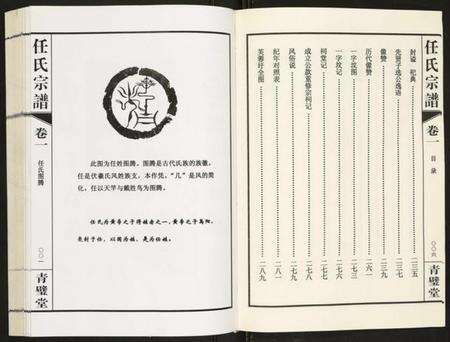 任氏宗譜
卷一
任氏图腾
〇〇一
青璧堂
此图为任姓图腾。图腾是古代氏族的族徽。
任是伏羲氏风姓族支，本作凭。“几”是风的简
化，任以天竿与戴胜鸟为图腾。
任氏为黄帝之子得姓者之一，黄帝之子禹阳，
受封于任，以国为姓，是为任姓。
任氏宗譜
卷一
目录
〇〇六
青璧堂
封谥 祀典 二三五
先贤子选公逸语 二三七
像赞 二三九
历代像赞 二六一
一字坟图 二七三
一字坟记 二七六
祠堂记 二七七
成立公款重修宗祠记 二七八
风俗说 二七九
纪年对照表 二八一
芙蓉圩全图 二八九